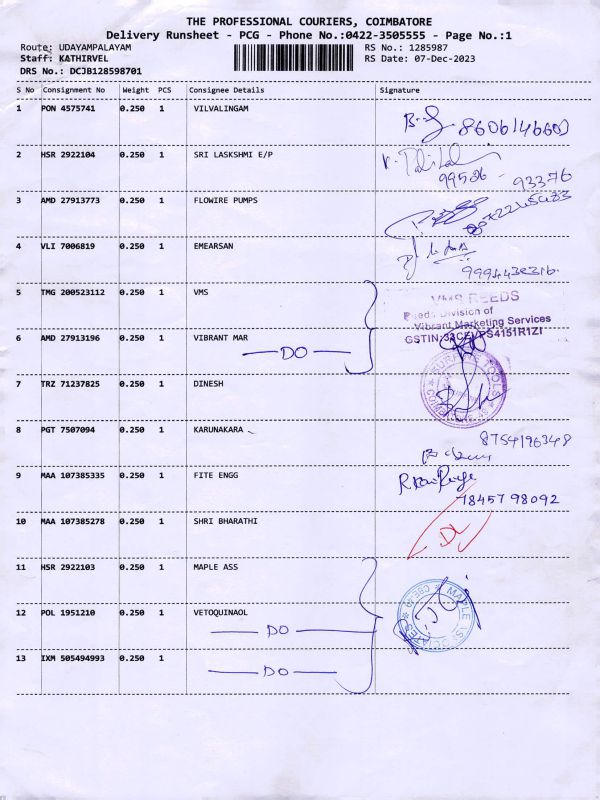 THE PROFESSIONAL COURIERS, COIMBATORE
Delivery Runsheet - PCG - Phone No.:0422-3505555 - Page No.:1
Route: UDAYAMPALAYAM RS No.: 1285987
Staff: KATHIRVEL RS Date: 07-Dec-2023
DRS No.: DCJB128598701
S No Consignment No Weight PCS Consignee Details Signature
1 PON 4575741 0.250 1 VILVALINGAM
2 HSR 2922104 0.250 1 SRI LASKSHMI E/P
99526 - 93376
3 AMD 27913773 0.250 1 FLOWIRE PUMPS
4 VLI 7006819 0.250 1 EMEARSAN
5 TMG 200523112 0.250 1 VMS
VMS REEDS
Reeds Division of
Vibrant Marketing Services
6 AMD 27913196 0.250 1 VIBRANT MAR
GSTIN:
DO
7 TRZ 71237825 0.250 1 DINESH
TOOLS
8 PGT 7507094 0.250 1 KARUNAKARA
8754196348
9 MAA 107385335 0.250 1 FITE ENGG
78457 98092
10 MAA 107385278 0.250 1 SHRI BHARATHI
DL
11 HSR 2922103 0.250 1 MAPLE ASS
MAPLE ASSOCIATES
12 POL 1951210 0.250 1 VETOQUINAOL
DO
13 IXM 505494993 0.250 1
DO